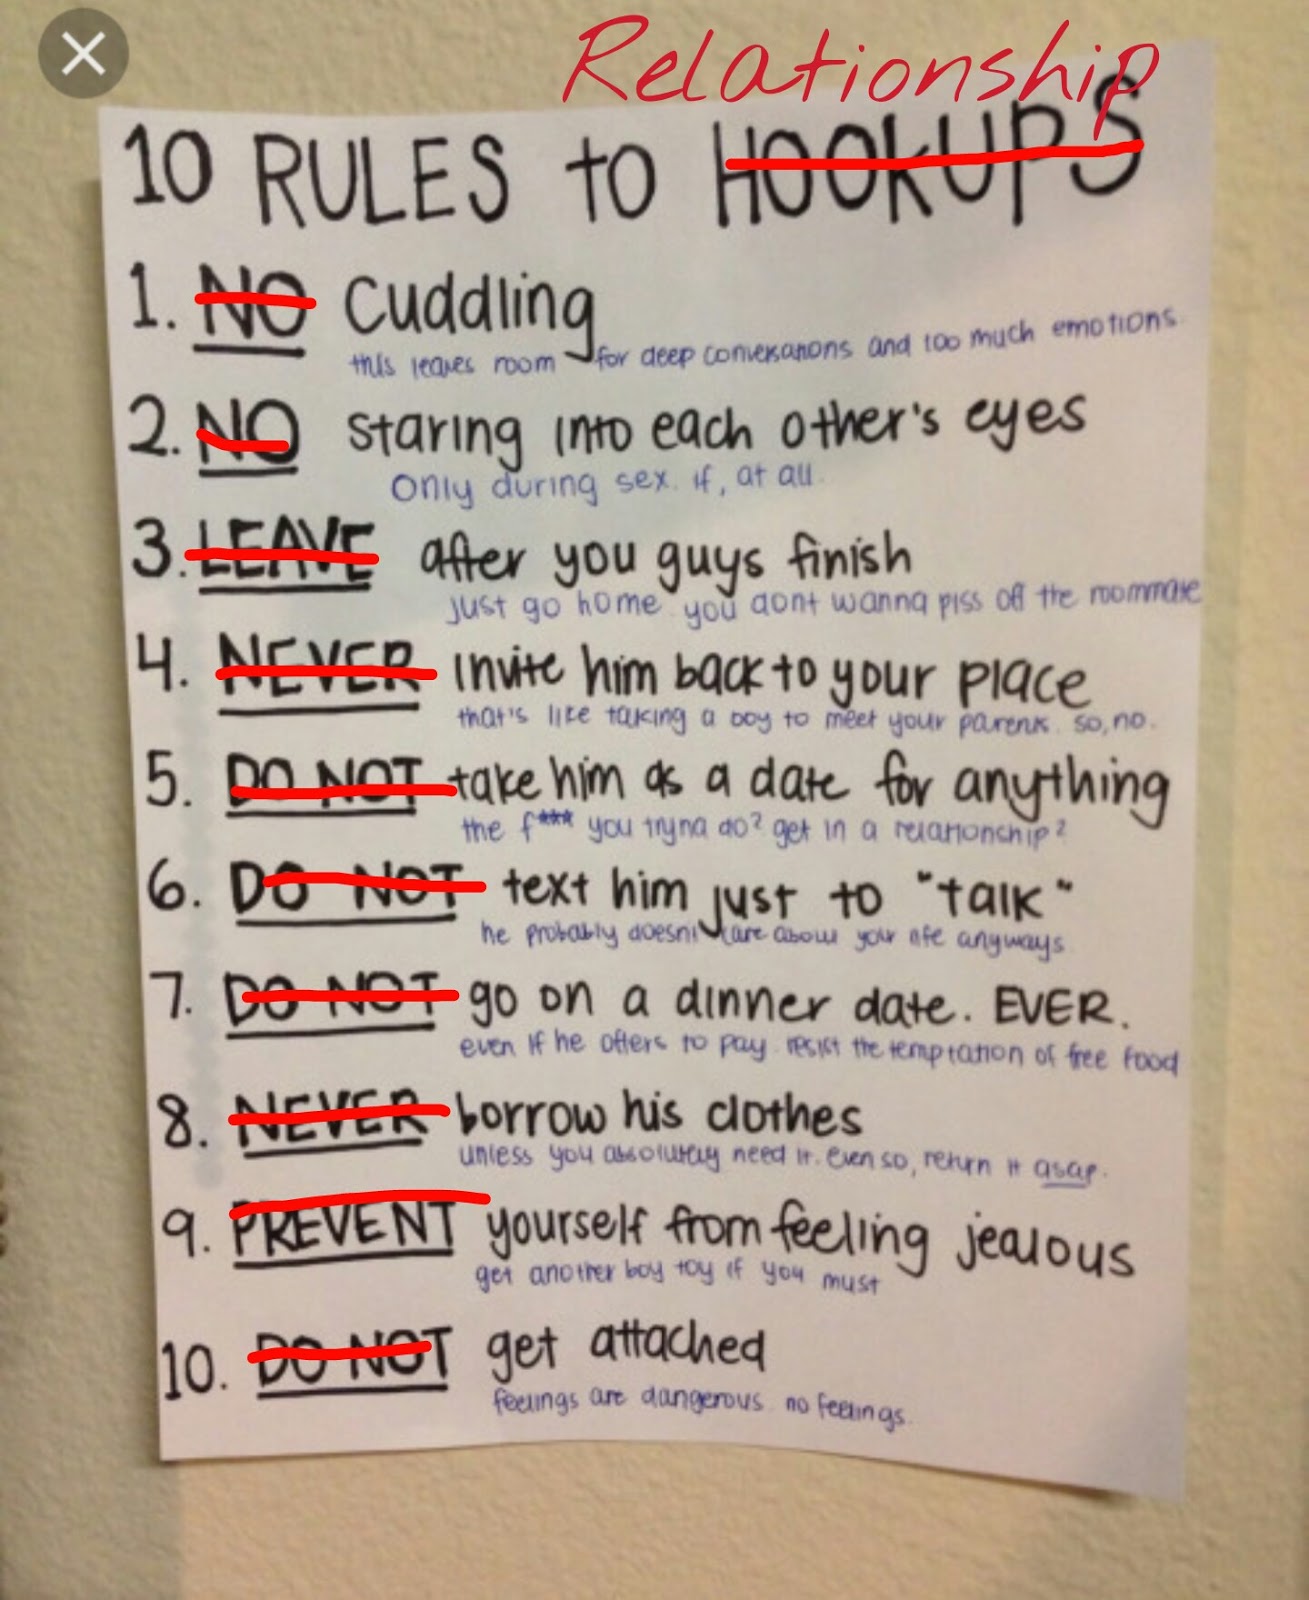 Relationship
10 RULES to HOOKUPS
1. NO cuddling
this leaves room for deep conversations and too much emotions.
2. NO staring into each other's eyes
Only during sex. if, at all.
3. LEAVE after you guys finish
just go home. you dont wanna piss off the roommate
4. NEVER invite him back to your place
that's like taking a boy to meet your parents. so, no.
5. DO NOT take him as a date for anything
the f*** you tryna do? get in a relationship?
6. DO NOT text him just to "talk"
he probably doesn't care about your life anyways
7. DO NOT go on a dinner date. EVER.
even if he offers to pay. resist the temptation of free food
8. NEVER borrow his clothes
unless you absolutely need it. even so, return it asap.
9. PREVENT yourself from feeling jealous
get another boy toy if you must
10. DO NOT get attached
feelings are dangerous. no feelings.